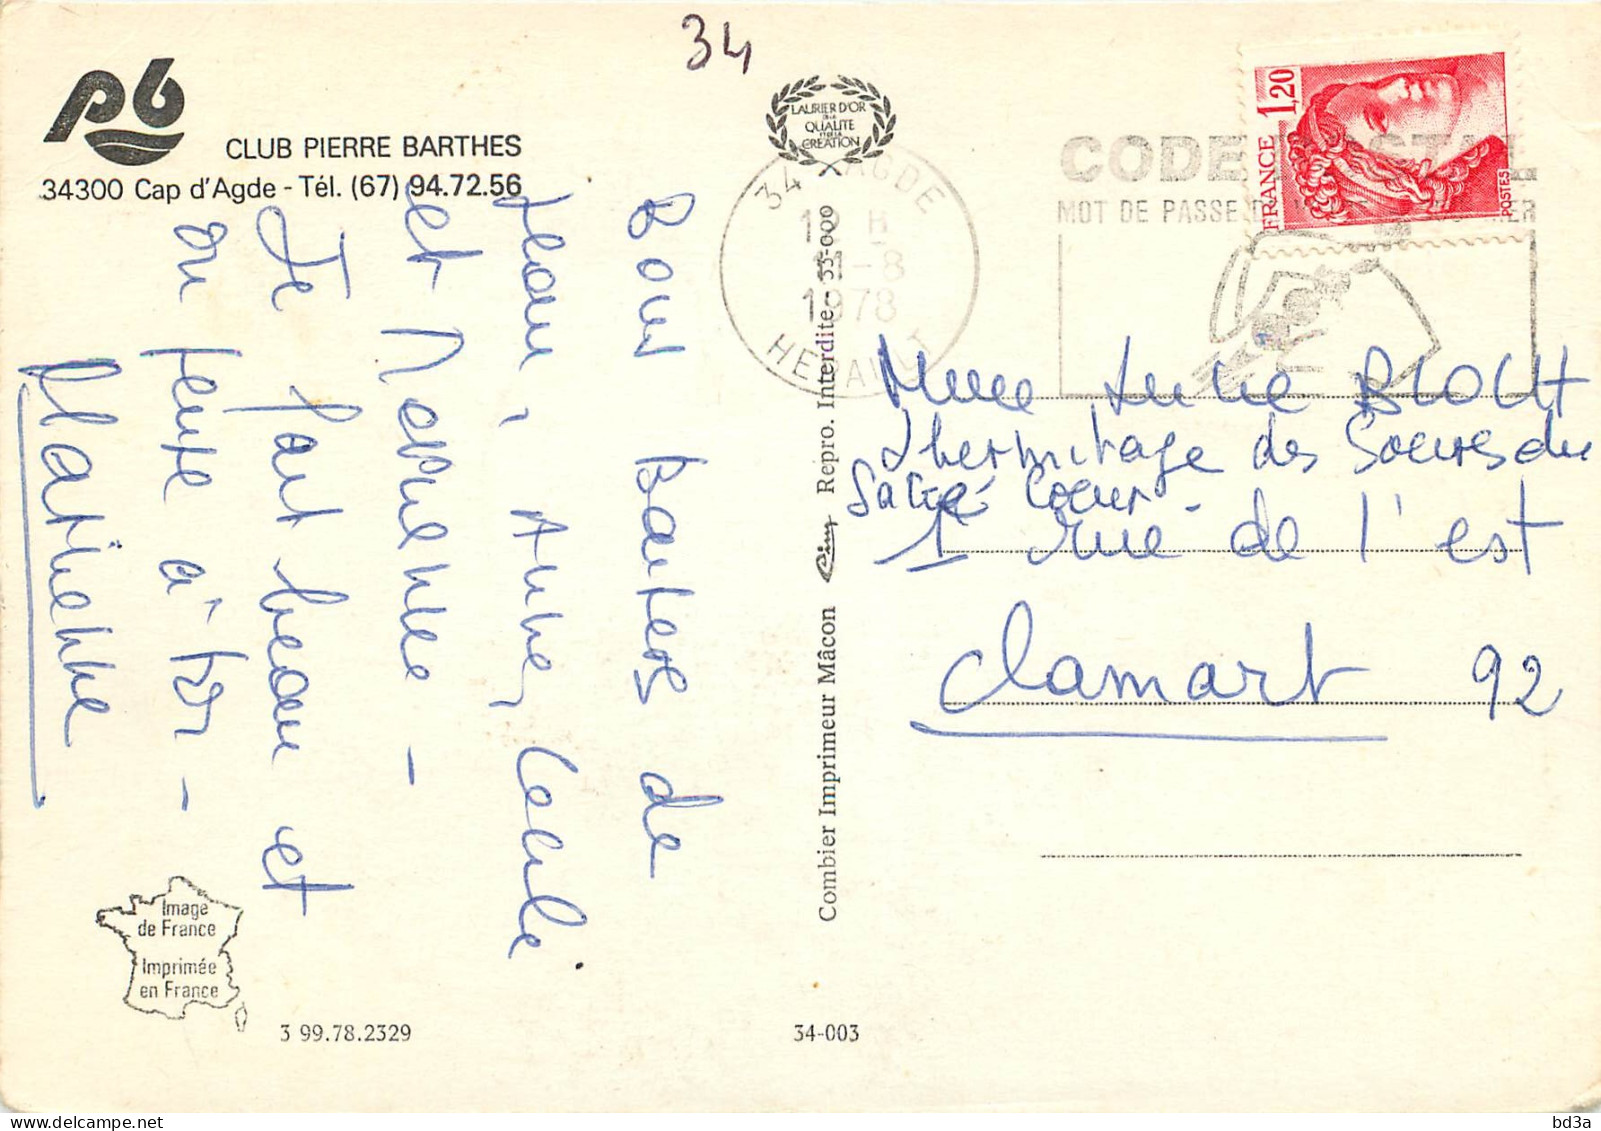 34
pb
CLUB PIERRE BARTHES
34300 Cap d'Agde - Tél. (67) 94.72.56
Bons Baisers de
Jean, Anne, Cécile
et
Je fait beau et
on joue à
LAURIER D'OR
DE LA
QUALITE
ET DE LA
CREATION
34 AGDE
1978
HERAULT
CODE POSTAL
MOT DE PASSE
FRANCE 1,20
POSTES
Mme Anne BLOCH
L'hermitage des Soeurs du
Sacré Coeur -
1 rue de l'est
Clamart 92
Combier Imprimeur Mâcon Cim Repro. Interdite - 33-600
Image
de France
Imprimée
en France
3 99.78.2329
34-003
delcampe.net
bd3a